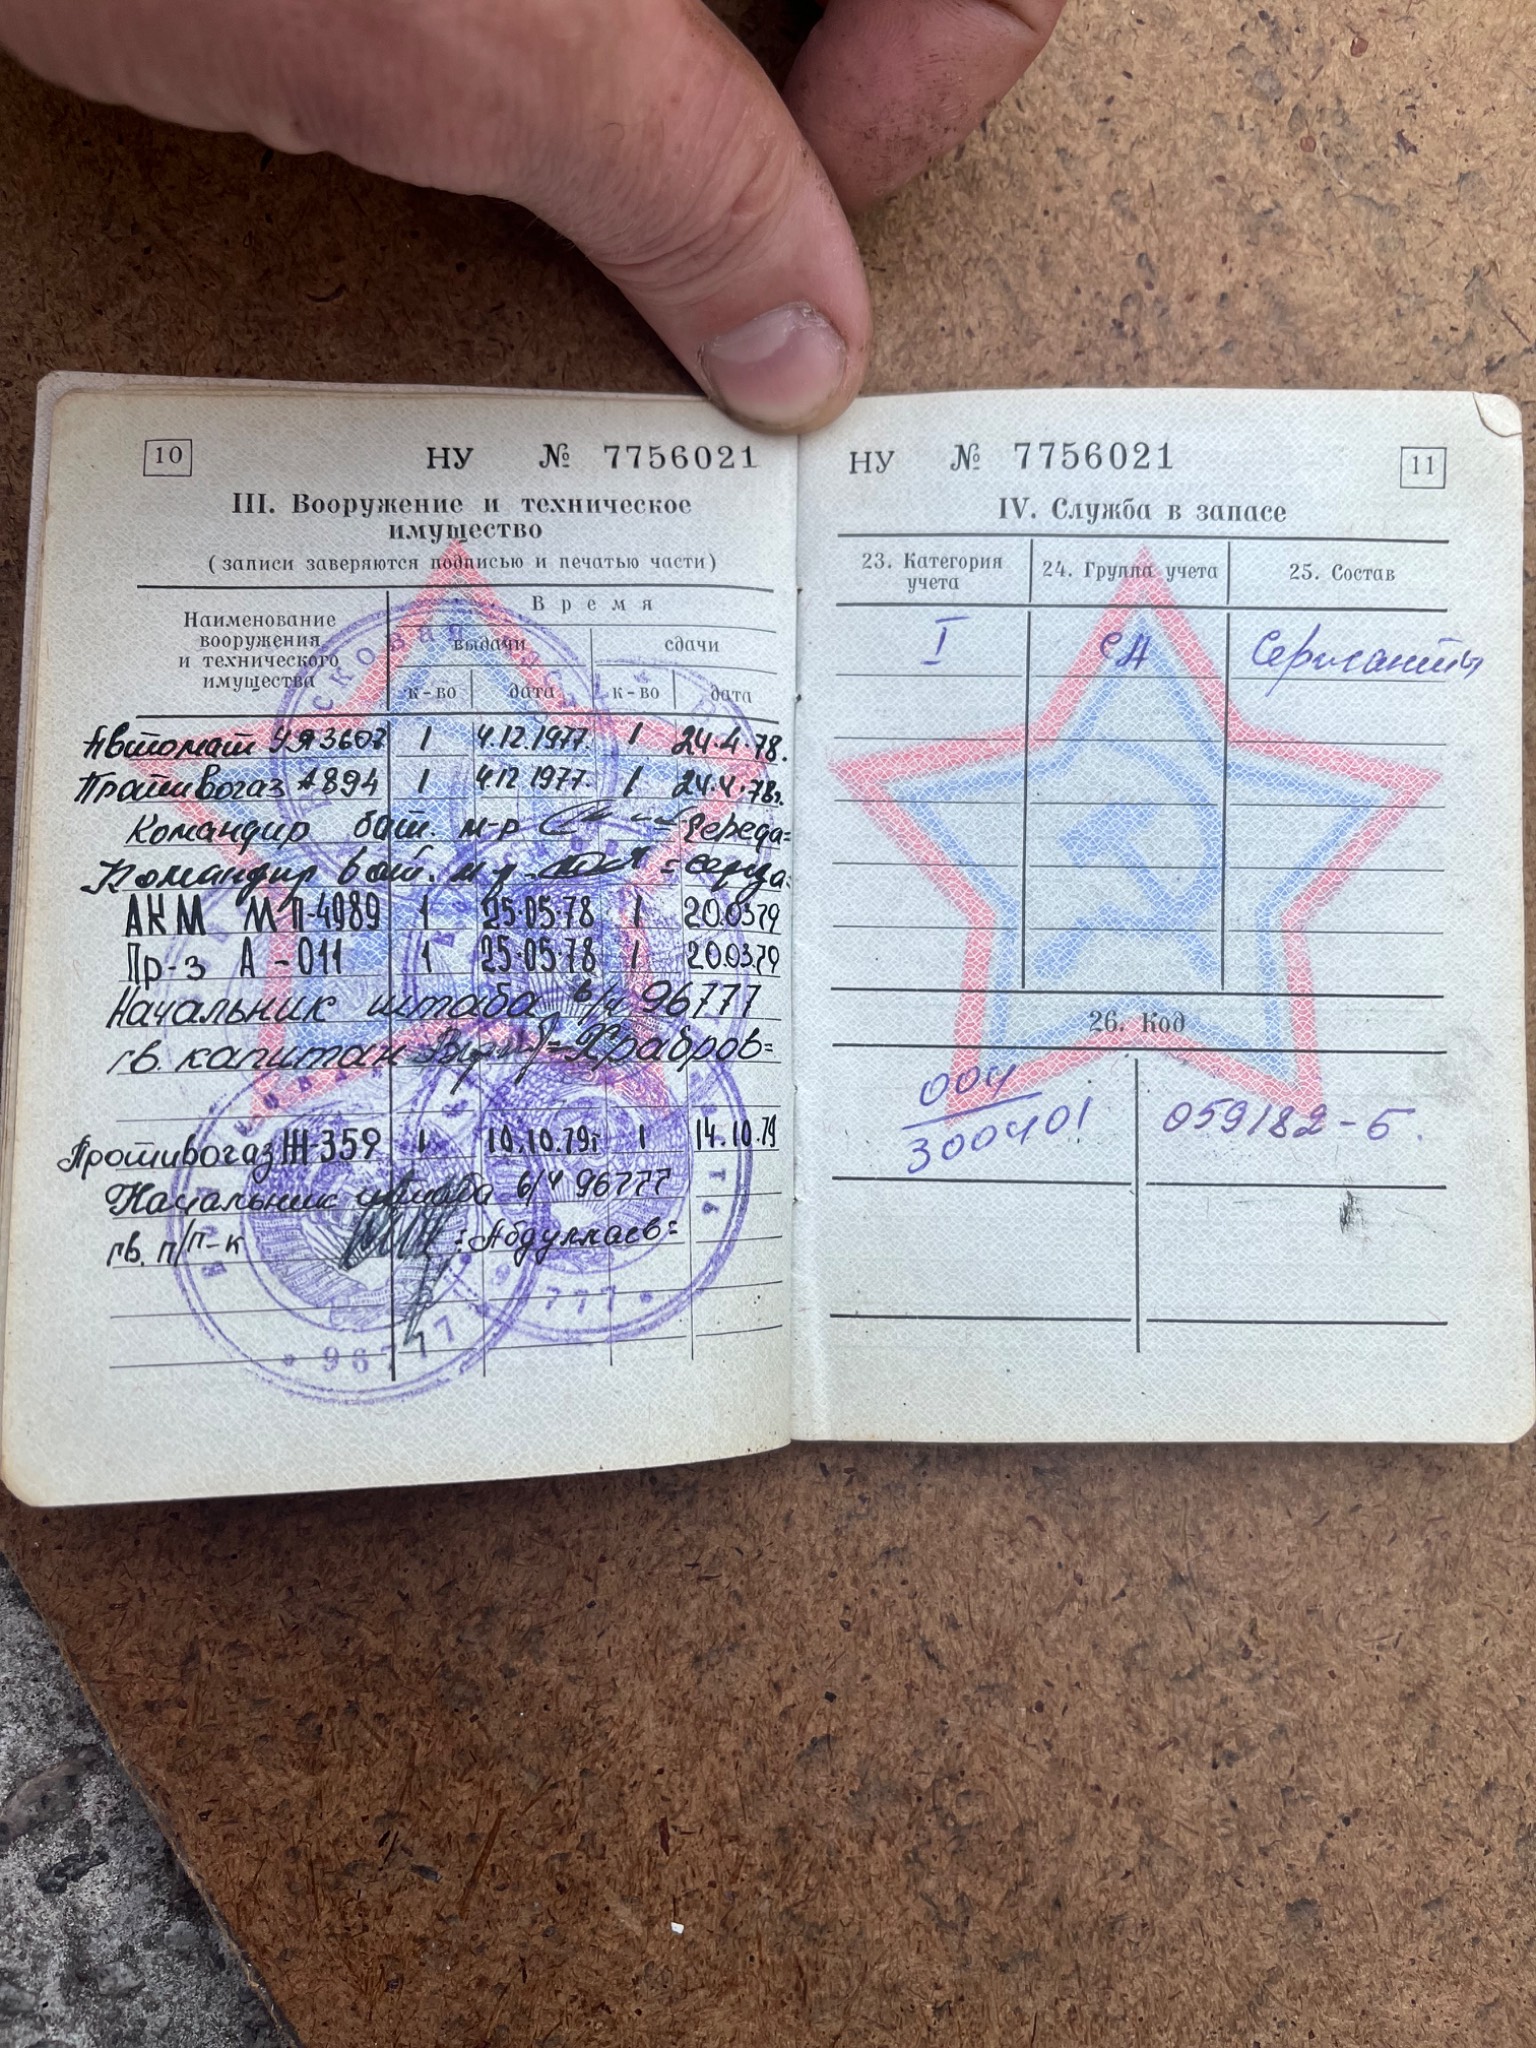 10
НУ № 7756021
III. Вооружение и техническое
имущество
(записи заверяются подписью и печатью части)
Наименование
вооружения
и технического
имущества
Время
выдачи
сдачи
к-во
дата
к-во
дата
Автомат УЯ 3607 1 4.12.1977. 1 24.4.78.
Противогаз А 894 1 4.12 1977. 1 24.4.78г.
Командир бат. м-р =Середа=
Командир бат. м-р = Середа.
АКМ МП-4989 1 25.05.78 1 20.03.79
Пр-з А-011 1 25.05.78 1 20.03.79
Начальник штаба в/ч 96777
гв. капитан =Храбров=
Противогаз Ж-359 1 10.10.79г 1 14.10.79
Начальник штаба в/ч 96777
гв. п/п-к =Абдуллаев=
* 96777
* 96777 *
НУ № 7756021
11
IV. Служба в запасе
23. Категория
учета
24. Группа учета
25. Состав
I СА Сержанты
26. Код
004
300401
059182-5.